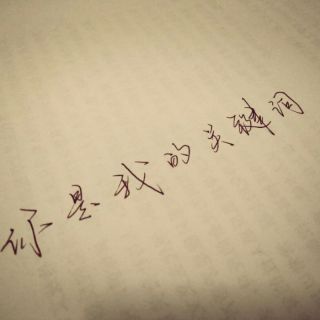 你是我的关键词